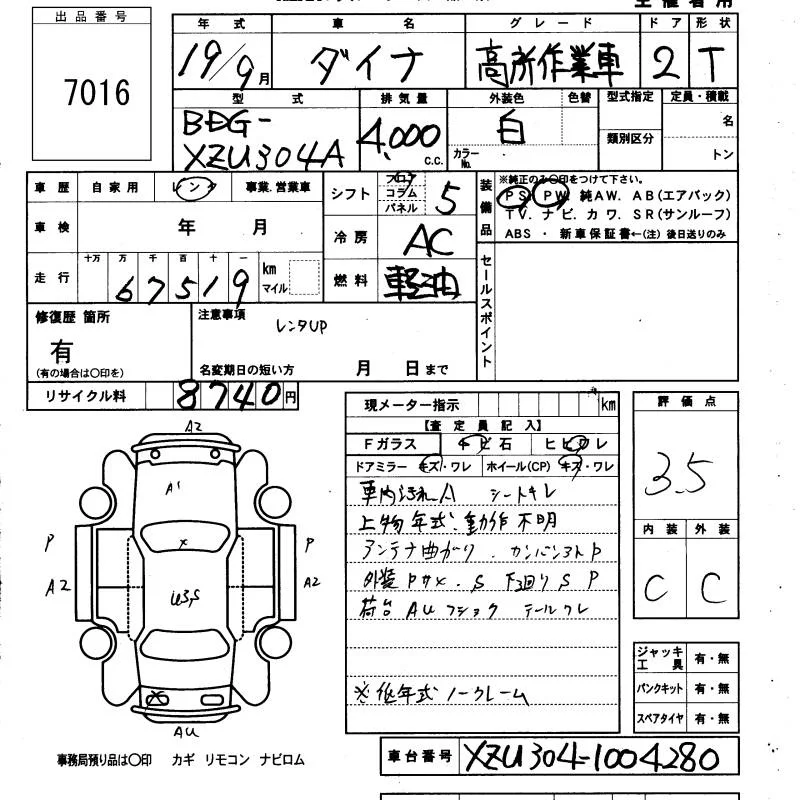 出品番号
7016
年式
車名
グレード
ドア
形状
19/9月
ダイナ
高所作業車
2
T
型式
排気量
外装色
色替
型式指定
定員・積載
BDG-
XZU304A
4,000
c.c.
白
カラーNo.
類別区分
名
トン
車歴
自家用
レンタ
事業.営業車
シフト
フロア
コラム
パネル
5
装備品
※純正のみ〇印をつけて下さい。
PS. PW. 純AW. AB(エアバック)
TV. ナビ. カワ. SR(サンルーフ)
ABS ・ 新車保証書←(注) 後日送りのみ
車検
年 月
冷房
AC
走行
十万 万 千 百 十 一
67519
km
マイル
燃料
軽油
セールスポイント
修復歴 箇所
有
(有の場合は〇印を)
注意事項
レンタUP
名変期日の短い方
月 日まで
リサイクル料
8740円
現メーター指示
km
【査定員記入】
Fガラス
キビ石
ヒビワレ
ドアミラー
キズ・ワレ
ホイール(CP)
キズ・ワレ
車内汚れ.A シートキレ
上物年式.動作不明
アンテナ曲がり.カンバンコトP
外装Pサメ.S 下回りSP
荷台 AU フショク テールワレ
※低年式 ノークレーム
評価点
3.5
内装
外装
C
C
ジャッキ
工具
有・無
パンクキット
有・無
スペアタイヤ
有・無
A2
A1
P
A2
P
A2
U3,S
AU
事務局預り品は〇印 カギ リモコン ナビロム
車台番号
XZU304-1004280